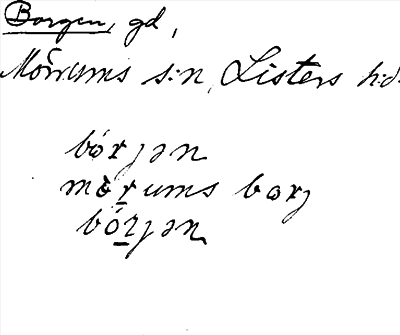 Borgen, gd,
Mörrums s:n, Listers h:d.
bórjən
mö̀rums barj
bórjən